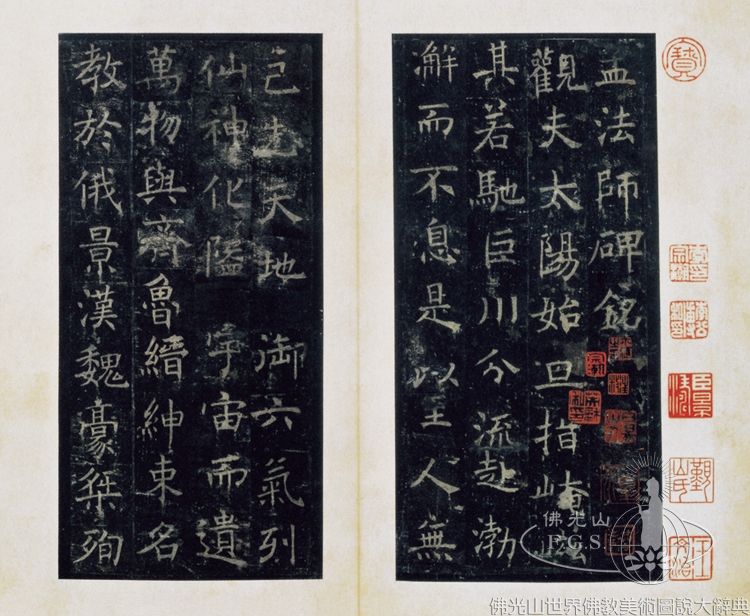 孟法師碑銘
觀夫太陽始旦指崦嵫
其若馳巨川分流赴渤
澥而不息是以至人無
己先天地 御六氣列
仙神化隘 宇宙而遺
萬物與齊魯縉紳束名
教於俄景漢魏豪桀殉
寶
佛光山
F.G.S
佛光山世界佛教美術圖說大辭典